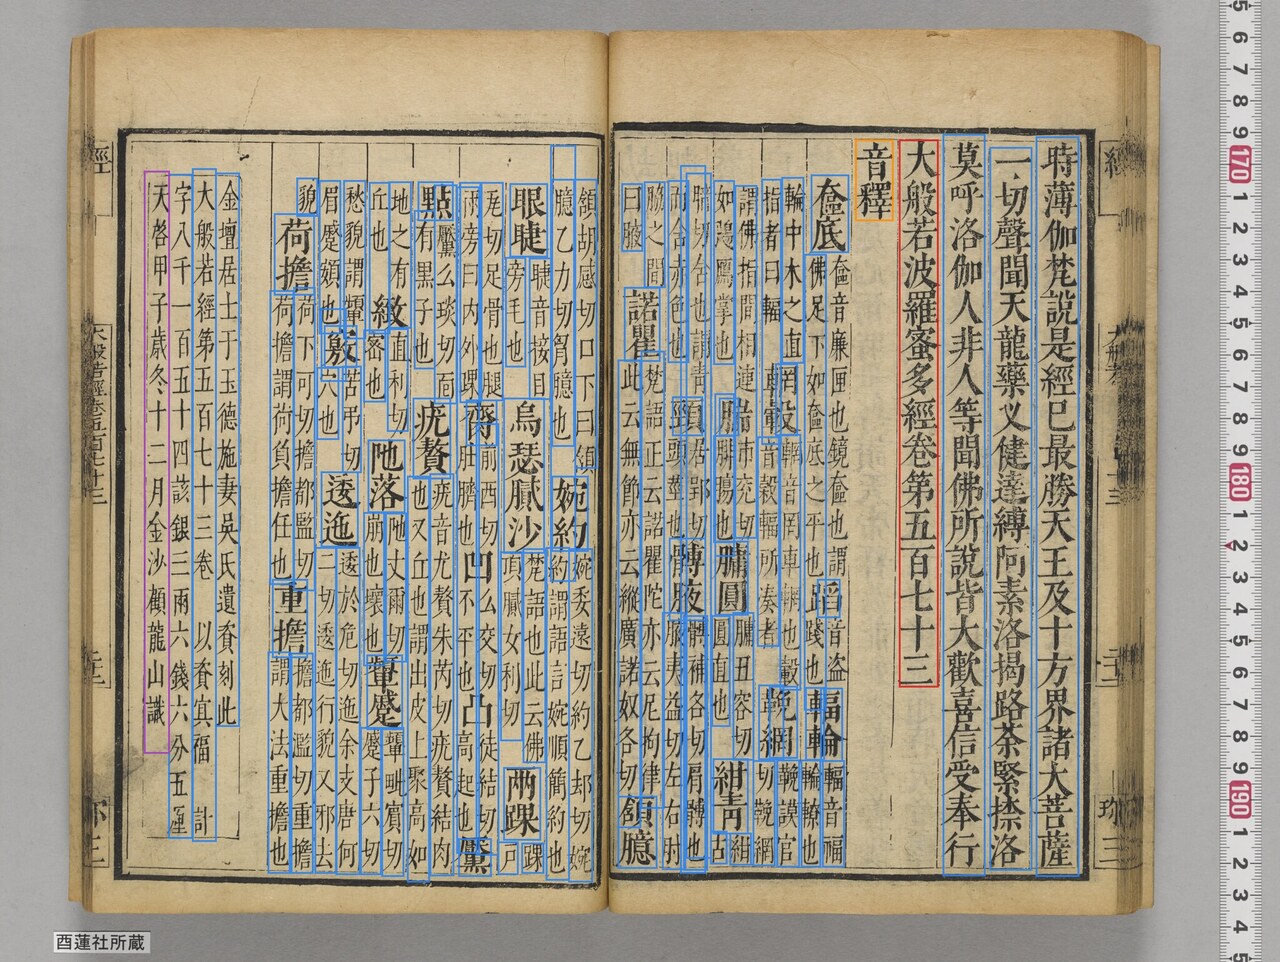 時薄伽梵說是經已最勝天王及十方界諸大菩薩
一切聲聞天龍藥叉健達縛阿素洛揭路荼緊捺洛
莫呼洛伽人非人等聞佛所說皆大歡喜信受奉行
大般若波羅蜜多經卷第五百七十三
音釋
奩底
奩音廉匣也鏡奩也謂
佛足下如奩底之平也
蹈
音盜
踐也
輻輪
輻音福
輪轑也
輪中木之直
指者曰輻
轂
輞音罔車輞也轂
音穀輻所湊者
鞔網
鞔謨官
切鞔網
謂佛指間相連
如鴻鴈掌也
𨄔
市兗切
腓腸也
𦟛圓
𦟛丑容切
圓直也
紺青
紺古
暗切含也謂青
而含赤色也
頸
居郢切
頭莖也
髆腋
髆補各切肩髆也
腋夷益切左右肘
脇之間
曰腋
諾瞿
梵語正云諾瞿陀亦云尼拘律
此云無節亦云縱廣諾奴各切
頷臆
頷胡感切口下曰頷
臆乙力切胷臆也
婉約
婉委遠切約乙却切婉
約謂語言婉順簡約也
眼睫
睫音接目
旁毛也
烏瑟膩沙
梵語也此云佛
頂膩女利切
兩踝
踝戸
瓦切足骨也腿
兩旁曰內外踝
齎
前西切
肚臍也
凹凸
凹么交切凸徒結切
不平也高起也
黶
點
黶么琰切面
有黑子也
疣贅
疣音尤贅朱芮切疣贅結肉
也又丘也謂出皮上聚高如
地之有
丘也
緻
直利切
密也
阤落
阤丈爾切
崩也壞也
顰蹙
顰毗賓切
蹙子六切
愁貌謂顰
眉蹙頞也
竅
苦弔切
穴也
逶迤
逶於危切迤余支唐何
二切逶迤行貌又邪去
貌
荷擔
荷下可切擔都監切
荷擔謂荷負擔任也
重擔
擔都濫切重擔
謂大法重擔也
金壇居士于玉德施妻吳氏遺眘刻此
大般若經第五百七十三卷 以眘寘福 計
字八千一百五十四該銀三兩六錢六分五厘
天啓甲子歲冬十二月金沙顧龍山識
大般若經卷五百七十三
酉蓮社所蔵
5
6
7
8
9
170
1
2
3
4
5
6
7
8
9
180
1
2
3
4
5
6
7
8
9
190
1
2
3
4
5